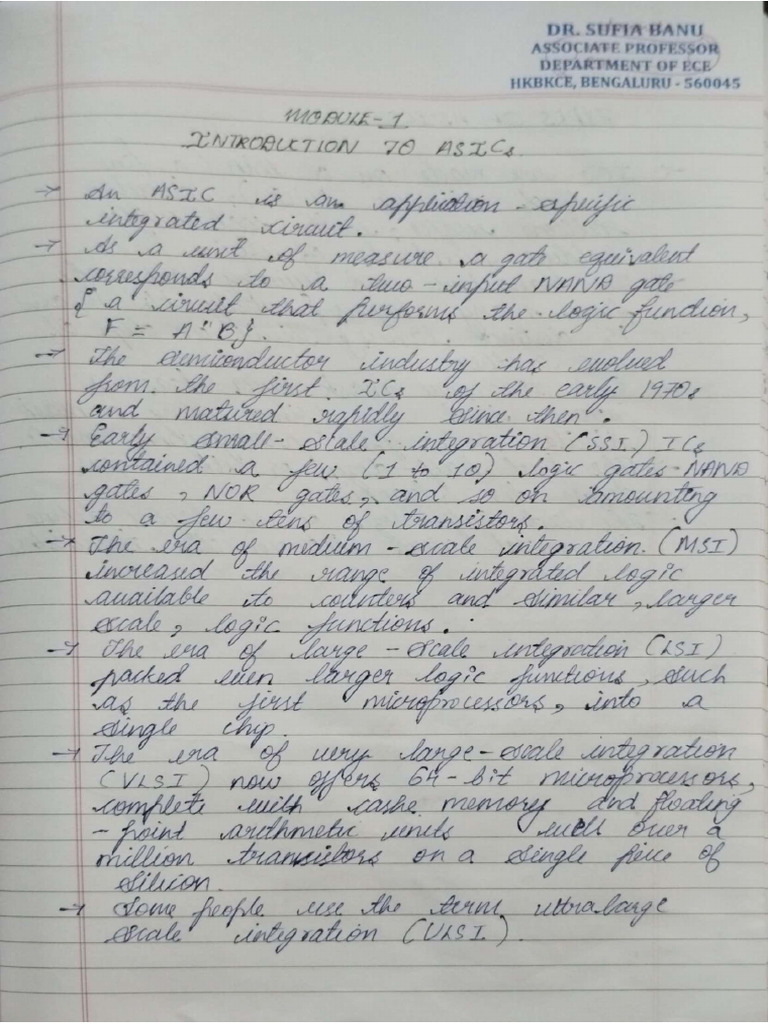 DR. SUFIA BANU
ASSOCIATE PROFESSOR
DEPARTMENT OF ECE
HKBKCE, BENGALURU - 560045
MODULE-1
INTRODUCTION TO ASICs
→ An ASIC is an application-specific
integrated circuit.
→ As a unit of measure a gate equivalent
corresponds to a two-input NAND gate
{ a circuit that performs the logic function,
F = A"B}.
→ The semiconductor industry has evolved
from the first ICs of the early 1970s
and matured rapidly since then.
→ Early small-scale integration (SSI) ICs
contained a few (1 to 10) logic gates-NAND
gates, NOR gates, and so on amounting
to a few tens of transistors.
→ The era of medium-scale integration (MSI)
increased the range of integrated logic
available to counters and similar, larger
scale, logic functions.
→ The era of large-scale integration (LSI)
packed even larger logic functions, such
as the first microprocessors, into a
single chip.
→ The era of very large-scale integration
(VLSI) now offers 64-bit microprocessors,
complete with cashe memory and floating
-point arithmetic units well over a
million transistors on a single piece of
silicon.
→ Some people use the term ultralarge
scale integration (ULSI).